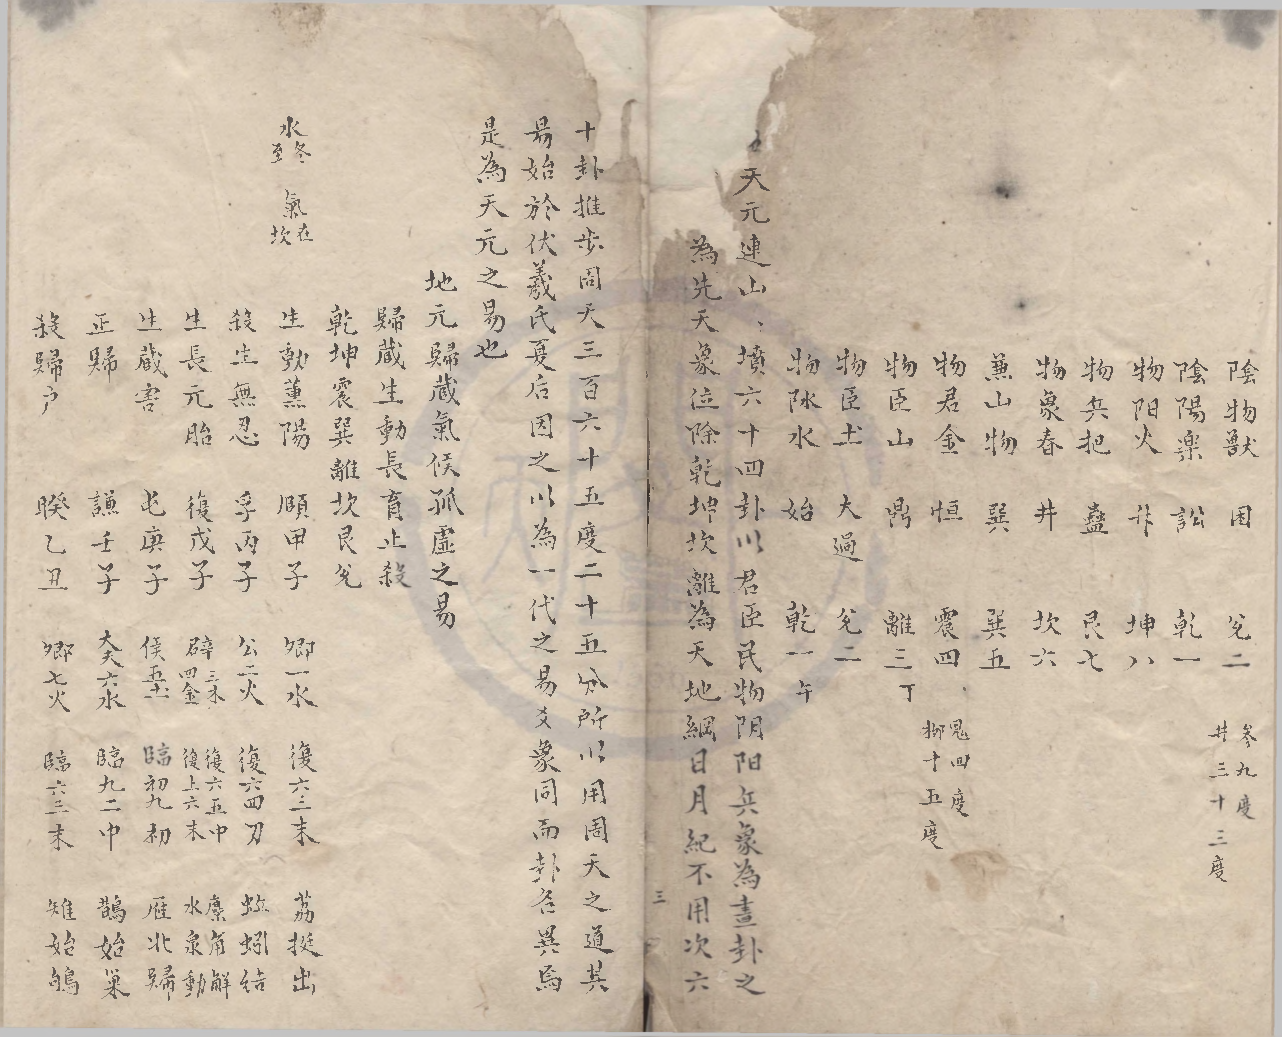 陰物獸 困 兌二 參九度 井三十三度
陰陽樂 訟 乾一
物阳火 升 坤八
物兵把 蠱 艮七
物象春 井 坎六
兼山物 巽 巽五
物君金 恒 震四 鬼四度 栁十五度
物臣山 鼎 離三丁
物臣土 大過 兌二
物阥水 始 乾一午
天元連山、墳六十四卦以君臣民物阴阳兵象為畫卦之
為先天象位除乾坤坎離為天地綱日月紀不用次六
三
十卦推步周天三百六十五度二十五分所以用周天之道其
昜始於伏羲氏夏后因之以為一代之昜爻象同而卦各異焉
是為天元之昜也
地元歸藏氣候孤虛之昜
歸藏生動長育止殺
乾坤震巽離坎艮兌
水冬至 氣在坎 生動薰陽 頤甲子 卿一水 復六三末 荔挺出
殺生無忍 孚丙子 公二火 復六四刃 蚯蚓结
生長元胎 復戊子 辟三木四金 復六五中復上六末 麋角解水泉動
生藏害 屯庚子 侯五土 臨初九初 雁北歸
正歸 謙壬子 大夫六水 臨九二中 鵲始巢
殺歸 睽乙丑 卿七火 臨六三末 雉始鴝